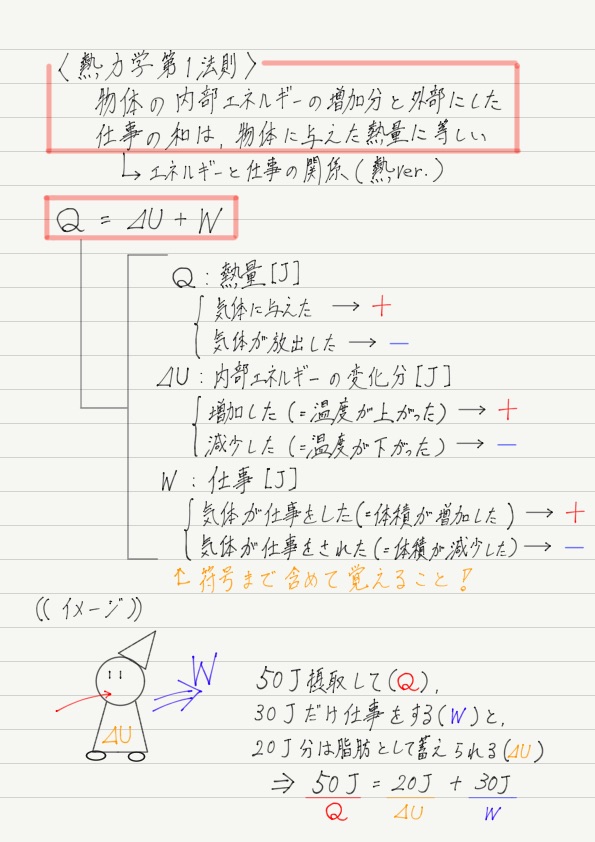 〈熱力学第1法則〉
物体の内部エネルギーの増加分と外部にした
仕事の和は、物体に与えた熱量に等しい
↳エネルギーと仕事の関係(熱ver.)
Q = ΔU + W
Q：熱量[J]
気体に与えた → +
気体が放出した → −
ΔU：内部エネルギーの変化分[J]
増加した(=温度が上がった) → +
減少した(=温度が下がった) → −
W：仕事[J]
気体が仕事をした(=体積が増加した) → +
気体が仕事をされた(=体積が減少した) → −
↑符号まで含めて覚えること!
((イメージ))
W
ΔU
50J摂取して(Q),
30Jだけ仕事をする(W)と,
20J分は脂肪として蓄えられる(ΔU)
⇒ 50J = 20J + 30J
Q ΔU W